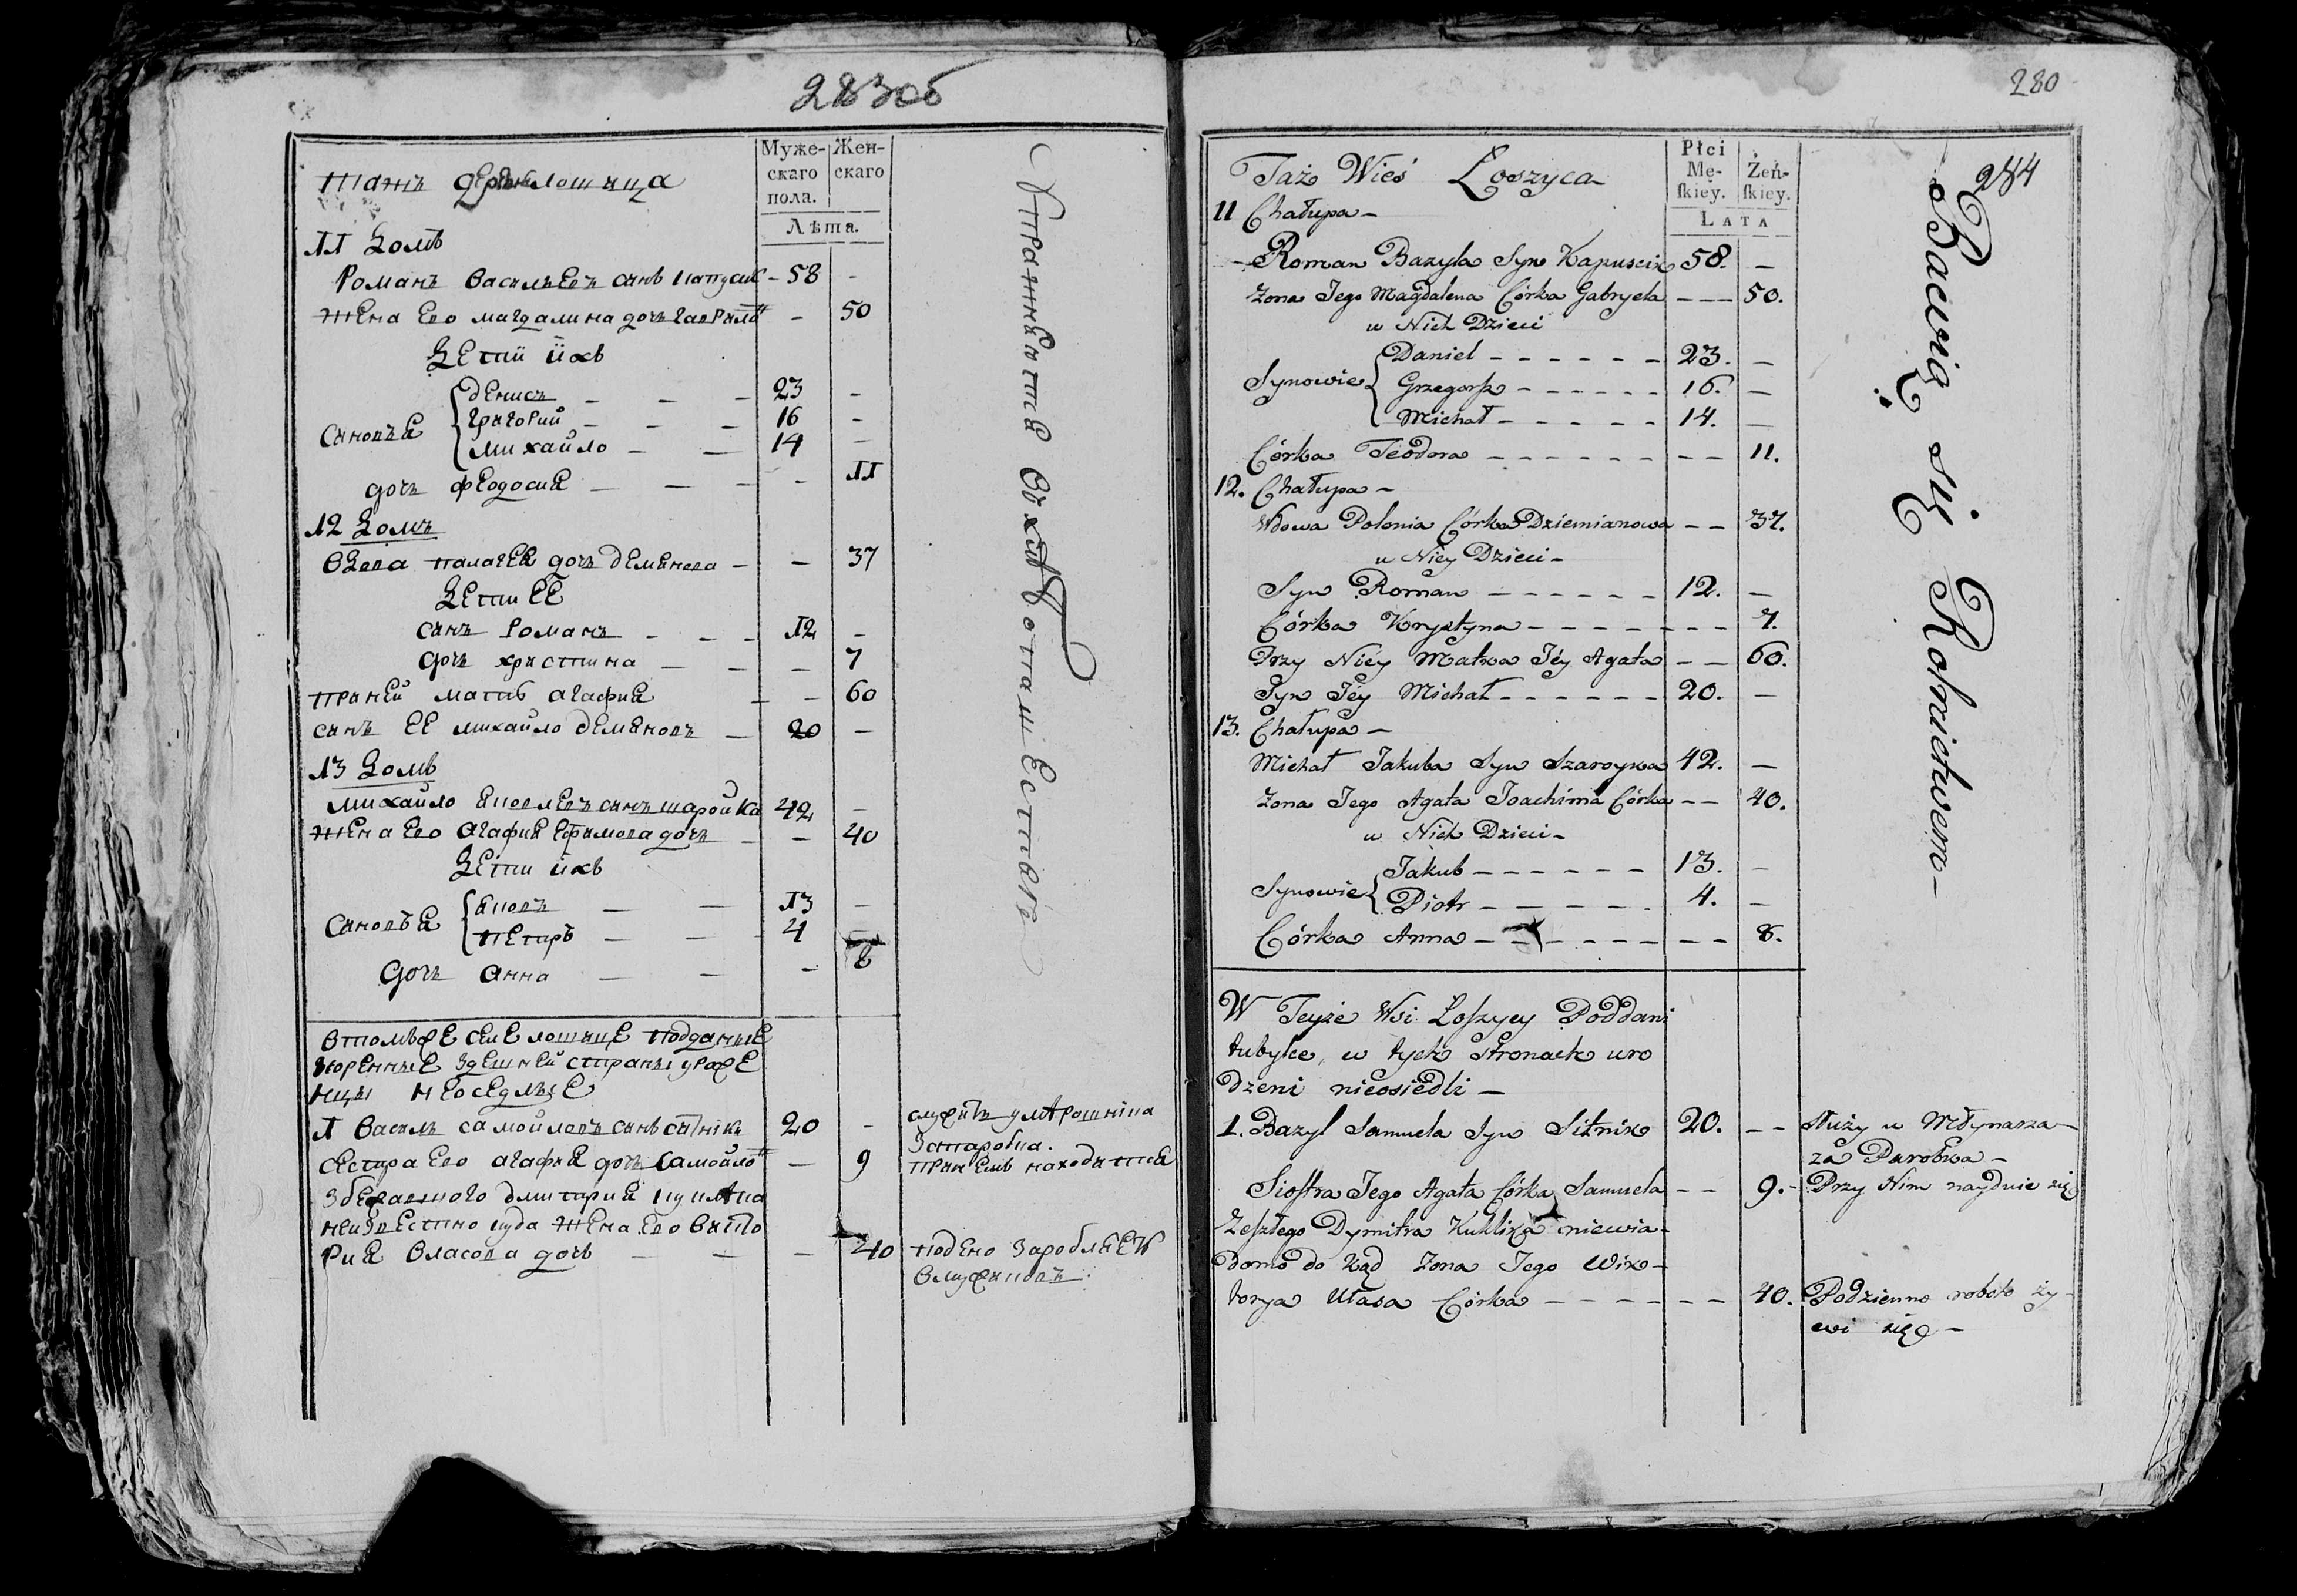 283об
Муже-
скаго
пола.
Жен-
скаго
Лѣта.
11 Домъ
Романъ Васильевъ сынъ – 58 –
Жена Ево Магдалина дочь – 50
Дети ихъ
Сыновья
Денисъ – – – 23 –
Григорий – – – 16 –
Михайло – – 14 –
дочь Феодосия – – – – 11
12 Домъ
Вдова Палагея дочь Демянова – – 37
Дети ЕЕ
сынъ Романъ – – – 12 –
дочь Христина – – – 7
При ней мать Агафия – – 60
сынъ ЕЕ Михайло Демяновъ – 20 –
13 Домъ
Михайло Яковлевъ сынъ Шаройка 42 –
Жена Ево Агафия Ефимова дочь – – 40
Дети ихъ
Сыновья
Яковъ – – 13 –
Петръ – – 4
дочь Анна – – – 8
неоседлые
1 Василь Самойловъ сынъ Ситникъ 20 –
сестра Ево Агафия дочь Самойло – 9
при емъ находится
Дмитрия
неизвестно куда Жена Ево Викто
рия Власова дочь – – – 40
280
284
Taż Wieś Łoszyca
Płci
Mę-
ſkiey.
Żeń-
ſkiey.
LATA
11 Chałupa –
Roman Bazyla Syn Kapuscik 58. –
Zona Jego Magdalena Córka Gabryela – – – 50.
u Nich Dzieci
Synowie
Daniel – – – – – – 23. –
Grzegorz – – – – – – 16. –
Michał – – – – – 14. –
Córka Teodora – – – – – – – – – 11.
12. Chałupa –
Wdowa Polonia Córka Dziemianowa – – 37.
u Niey Dzieci –
Syn Roman – – – – – – 12. –
Córka Krystyna – – – – – – – – 7.
Przy Niéy Matka Jéy Agata – – 60.
Syn Jéy Michał – – – – – – 20. –
13. Chałupa –
Michał Jakuba Syn Szaroyka 42. –
Zona Jego Agata Joachima Córka – – 40.
u Nich Dzieci –
Synowie
Jakub – – – – – – 13. –
Piotr – – – – – 4. –
Córka Anna – – – – – – – – – 8.
Bawią się Rolnictwem –
W Teyże Wsi Łoszycy Poddani
tubylce, w tych stronach uro
dzeni nieosiedli –
1. Bazyl Samuela Syn Sitnik 20. – – Służy u Młynarza
za Parobka –
Siostra Jego Agata Córka Samuela – – 9. – Przy Nim nayduie się
Zeszłego Dymitra Kuklika niewia-
domo do kąd Zona Jego Wik-
torya Ułasa Córka – – – – – – 40. Podzienno robotą ży-
wi się –